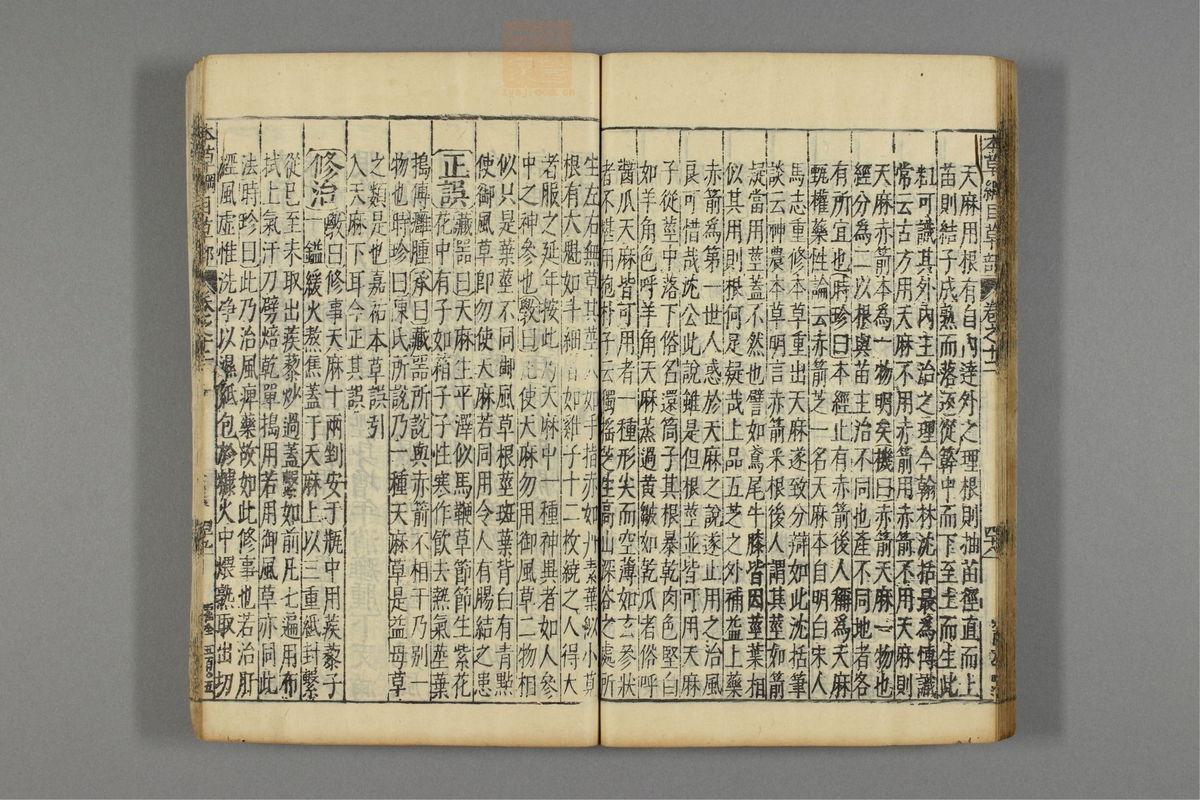 本草綱目草部 卷之十二
天麻用根有自內達外之理根則抽苗徑直而上
苗則結子成熟而落返從簳中而下至土而生此
粗可識其外內主治之理今翰林沈括最爲博識
常云古方用天麻不用赤箭用赤箭不用天麻則
天麻赤箭本爲一物明矣機曰赤箭天麻一物也
經分爲二以根與苗主治不同也產不同地者各
有所宜也時珍曰本經止有赤箭後人稱爲天麻
甄權藥性論云赤箭芝一名天麻本自明白宋人
馬志重修本草重出天麻遂致分辯如此沈括筆
談云神農本草明言赤箭采根後人謂其莖如箭
疑當用莖蓋不然也譬如鳶尾牛膝皆因莖葉相
似其用則根何足疑哉上品五芝之外補益上藥
赤箭爲第一世人惑於天麻之說遂止用之治風
良可惜哉沈公此說雖是但根莖並皆可用天麻
子從莖中落下俗名還筒子其根暴乾肉色堅白
如羊角色呼羊角天麻蒸過黄皺如乾瓜者俗呼
醬瓜天麻皆可用者一種形尖而空薄如玄參狀
者不堪用抱朴子云獨摇芝生高山深谷之處所
生左右無草其莖大如手指赤如丹素葉似小莧
根有大魁如斗細者如雞子十二枚繞之人得大
者服之延年按此乃天麻中一種神異者如人參
中之神參也斆曰凡使天麻勿用御風草二物相
似只是葉莖不同御風草根莖斑葉背白有青點
使御風草卽勿使天麻若同用令人有腸結之患
正誤 藏器曰天麻生平澤似馬鞭草節節生紫花
花中有子如青葙子子性寒作飲去熱氣莖葉
搗傅癰腫承曰藏器所說與赤箭不相干乃别一
物也時珍曰陳氏所說乃一種天麻草是益母草
之類是也嘉祐本草誤引
入天麻下耳今正其誤
修治 斆曰修事天麻十兩剉安于瓶中用蒺藜子
一鎰緩火熬焦蓋于天麻上以三重紙封繫
從巳至未取出蒺藜炒過蓋繫如前凡七遍用布
拭上氣汗刀劈焙乾單搗用若用御風草亦同此
法時珍曰此乃治風痺藥故如此修事也若治肝
經風虛惟洗淨以濕紙包於糠火中煨熟取出切
本草綱目草部 卷之十二